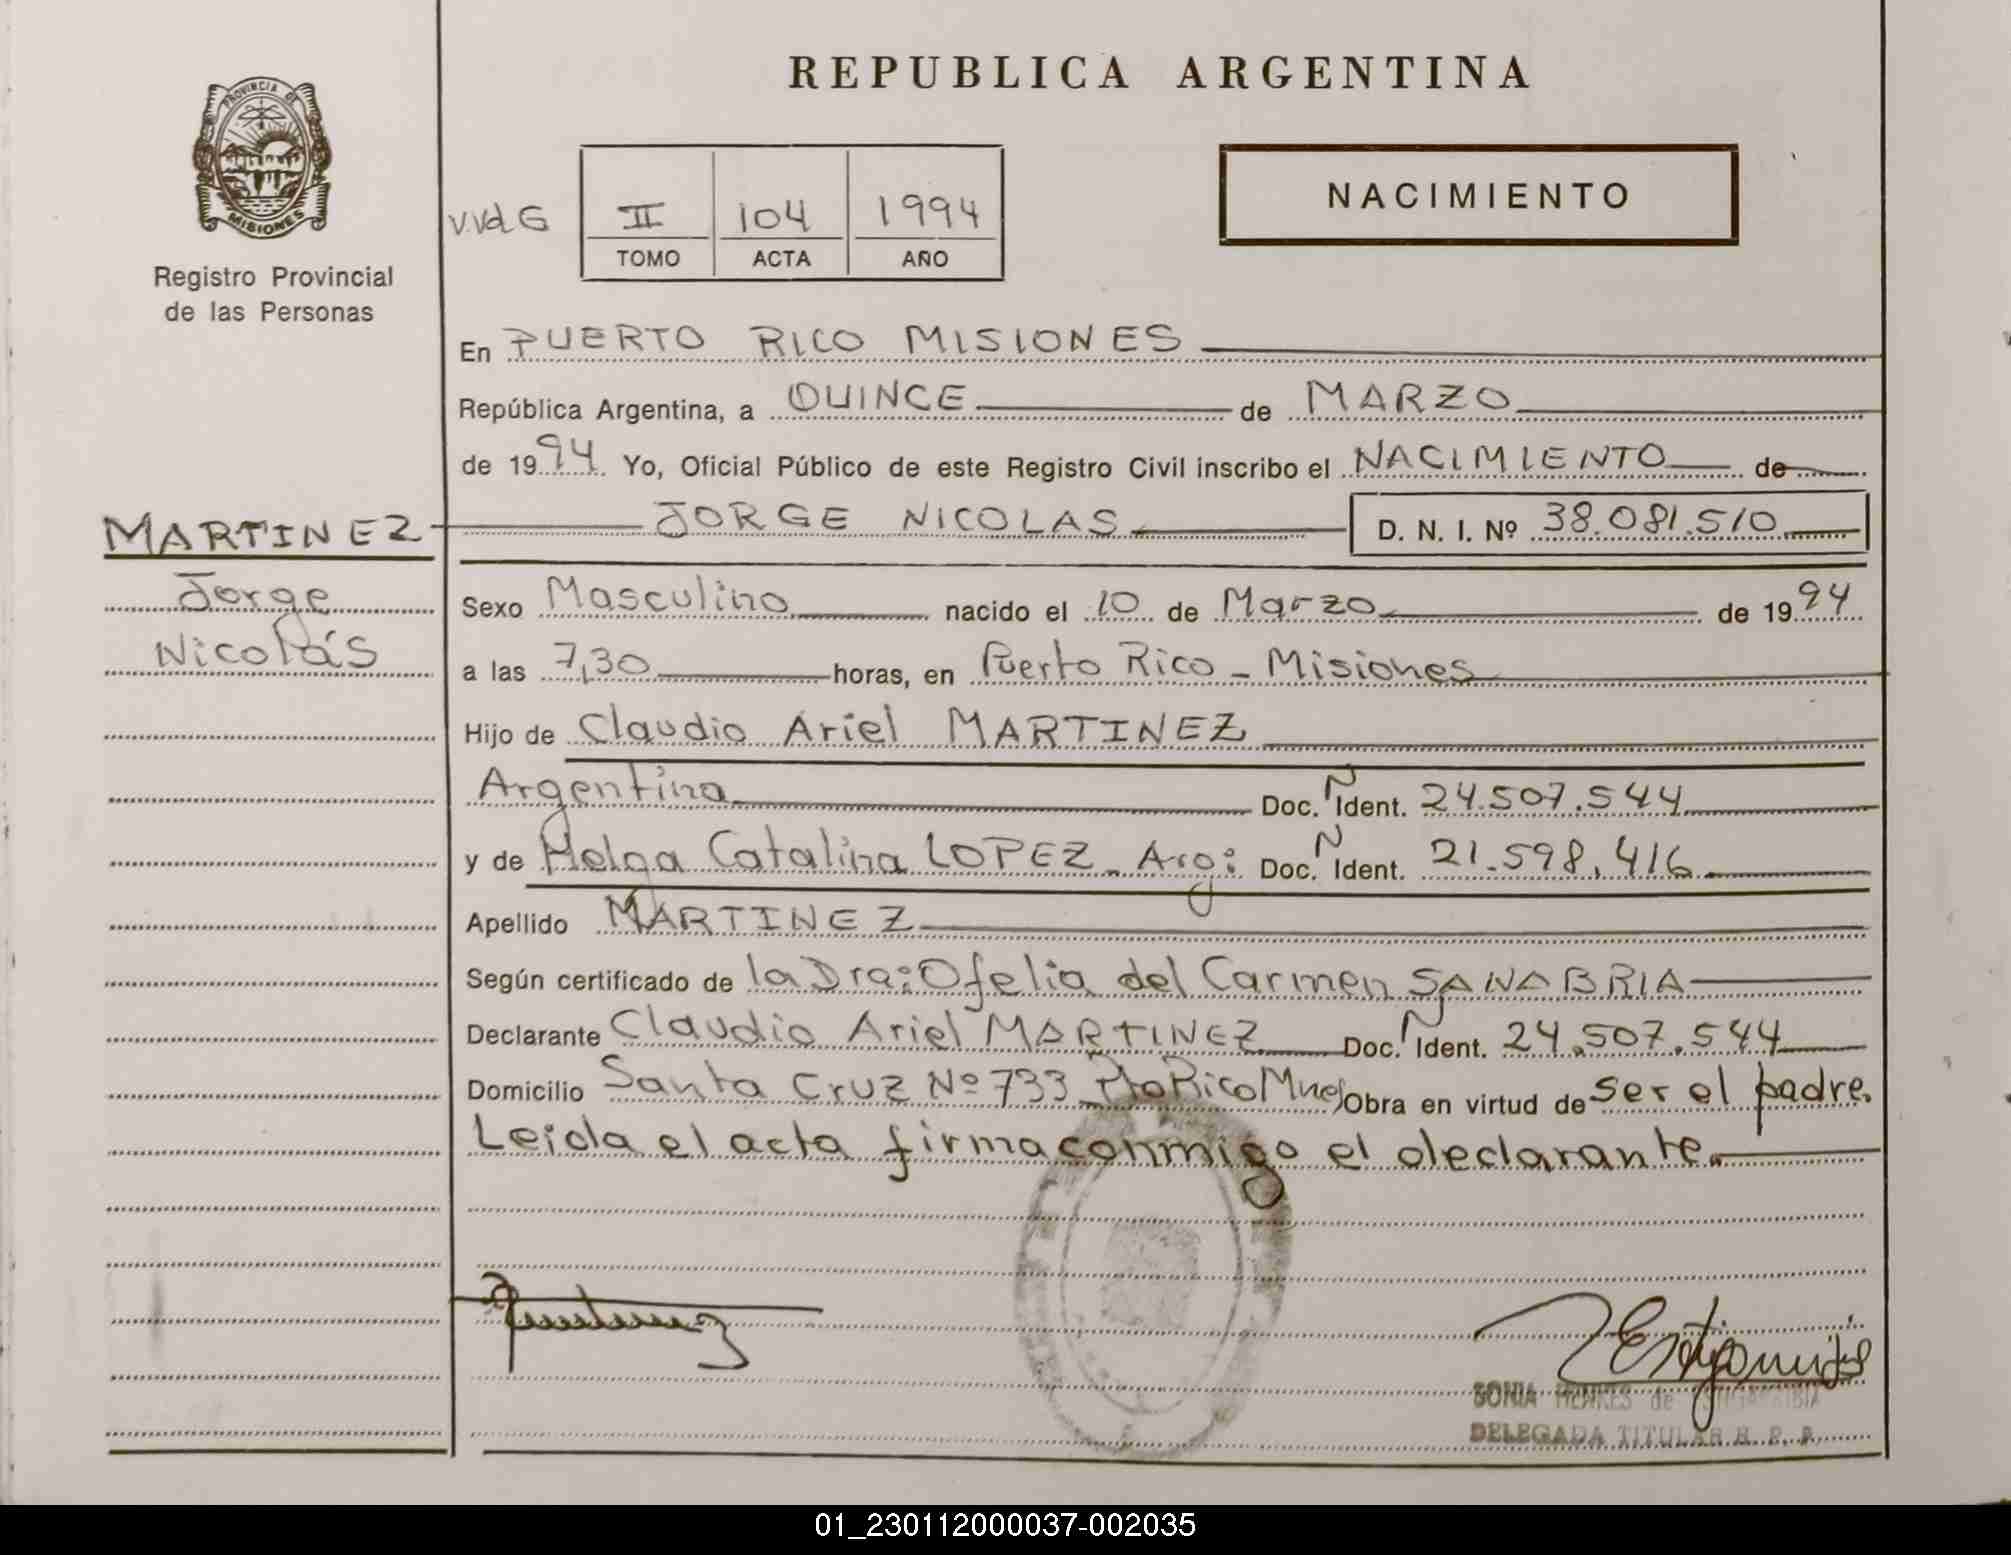 REPUBLICA ARGENTINA
PROVINCIA DE MISIONES
Registro Provincial
de las Personas
VVdG
II 104 1994
TOMO ACTA AÑO
NACIMIENTO
En PUERTO RICO MISIONES
República Argentina, a QUINCE de MARZO
de 1994 Yo, Oficial Público de este Registro Civil inscribo el NACIMIENTO de
MARTINEZ JORGE NICOLAS D. N. I. Nº 38.081.510
Jorge
Nicolás
Sexo Masculino nacido el 10 de Marzo de 1994
a las 7,30 horas, en Puerto Rico - Misiones
Hijo de Claudio Ariel MARTINEZ
Argentina Doc. N Ident. 24.507.544
y de Helga Catalina LOPEZ - Arg: Doc. N Ident. 21.598.416
Apellido MARTINEZ
Según certificado de la Dra: Ofelia del Carmen SANABRIA
Declarante Claudio Ariel MARTINEZ Doc. N Ident. 24.507.544
Domicilio Santa Cruz Nº 733 Pto Rico Mnes Obra en virtud de ser el padre.
Leida el acta firma conmigo el declarante.
SONIA HENKES de ESTIGARRIBIA
DELEGADA TITULAR R. P. P.
01_230112000037-002035